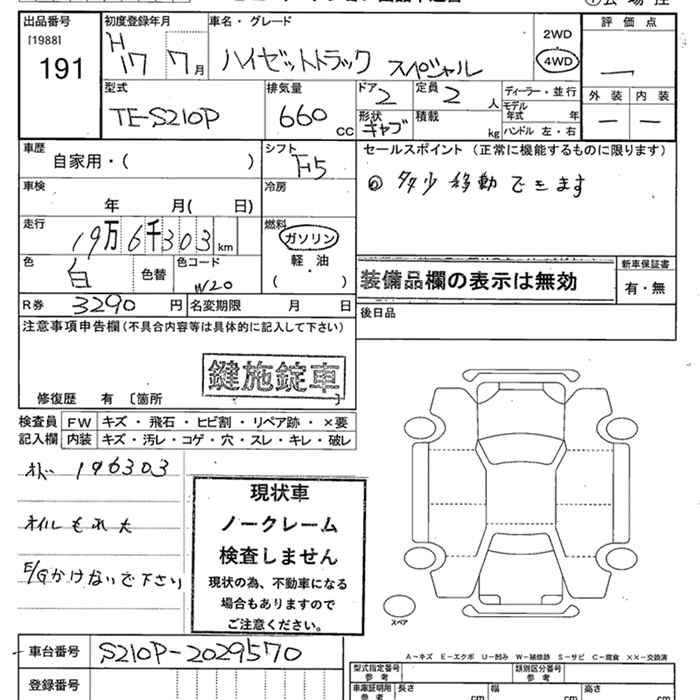 出品番号
[1988]
191
初度登録年月
H17 7月
車名・グレード
ハイゼットトラック スペシャル
2WD
4WD
評価点
外装 内装
型式
TE-S210P
排気量
660 CC
ドア 2
定員 2 人
形状 キャブ
積載 kg
ディーラー・並行
モデル年式 年
ハンドル 左・右
車歴
自家用・( )
シフト
F5
セールスポイント (正常に機能するものに限ります)
多少移動できます
車検
年 月( 日)
冷房
走行
19万6千303km
燃料
ガソリン
軽・油
( )
色
白
色替
色コード
W20
装備品欄の表示は無効
新車保証書
有・無
R券 3290円
名変期限 月 日
後日品
注意事項申告欄(不具合内容等は具体的に記入して下さい)
鍵施錠車
修復歴 有 〔箇所
検査員記入欄
FW キズ・飛石・ヒビ割・リペア跡・×要
内装 キズ・汚レ・コゲ・穴・スレ・キレ・破レ
オドー 196303
オイルもれ大
E/Gかけないで下さい
現状車
ノークレーム
検査しません
現状の為、不動車になる
場合もありますので
ご注意ください。
スペア
車台番号 S210P-2029570
登録番号
A-キズ E-エクボ U-凹み W-補修跡 S-サビ C-腐食 ××-交換済
型式指定番号 参考
類別区分番号 参考
車庫証明用 参考
長さ cm
幅 cm
高さ cm